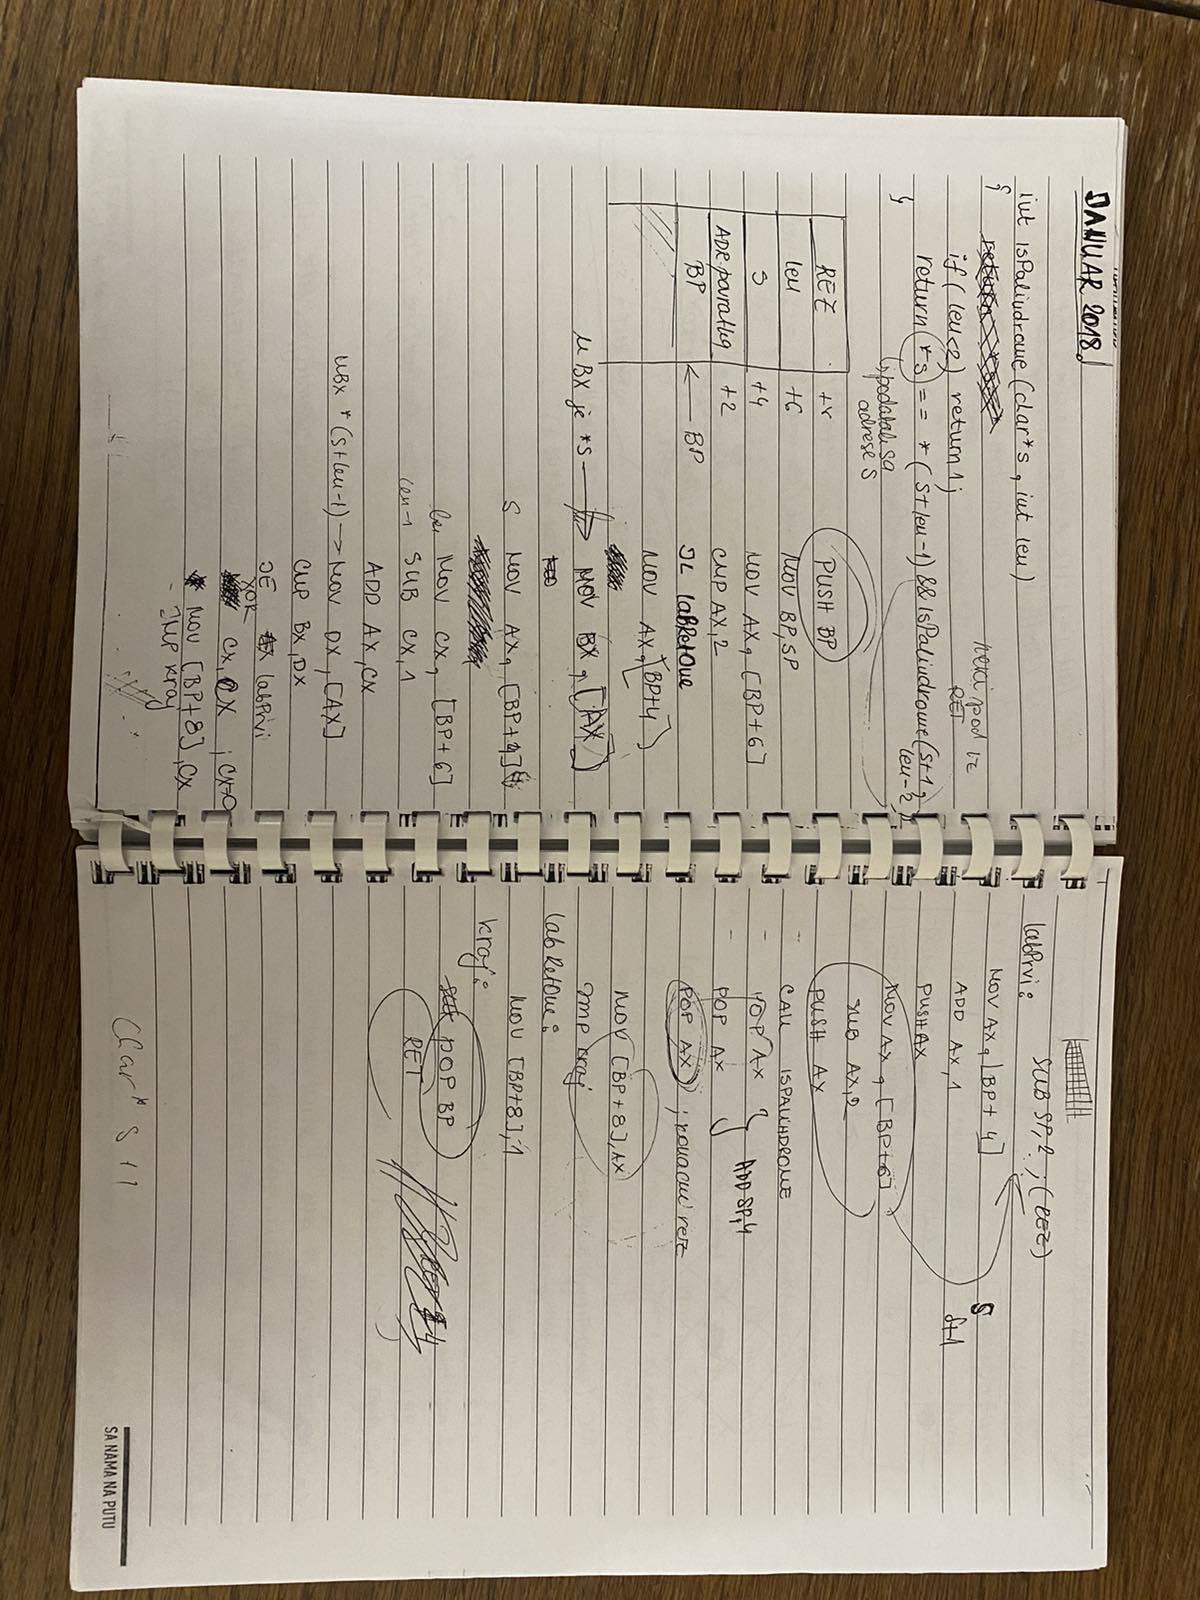 JANUAR 2018.
int isPalindrome (char*s, int len)
{
if (len<2) return 1;
return *s == *(s+len-1) && isPalindrome(s+1,
len-2);
}
podatak sa
adrese s
RET
REZ +8
len +6
s +4
ADR. povratka +2
BP ← BP
PUSH BP
MOV BP, SP
MOV AX, [BP+6]
CMP AX, 2
JL labRetOne
MOV AX, [BP+4]
u BX je *s → MOV BX, [AX]
s MOV AX, [BP+4]
len MOV CX, [BP+6]
len-1 SUB CX, 1
ADD AX, CX
u BX *(s+len-1) -> MOV DX, [AX]
CMP BX, DX
JE labPrvi
XOR CX, CX ; CX=0
MOV [BP+8], CX
JMP kraj
SUB SP, 2 ; (REZ)
labPrvi:
MOV AX, [BP+4]
ADD AX, 1
PUSH AX
MOV AX, [BP+6]
SUB AX, 2
PUSH AX
S
S+1
CALL ISPALINDROME
POP AX
POP AX } ADD SP, 4
POP AX ; konacni rez
MOV [BP+8], AX
JMP kraj
labRetOne:
MOV [BP+8], 1
kraj:
POP BP
RET
Char* S 11
SA NAMA NA PUTU